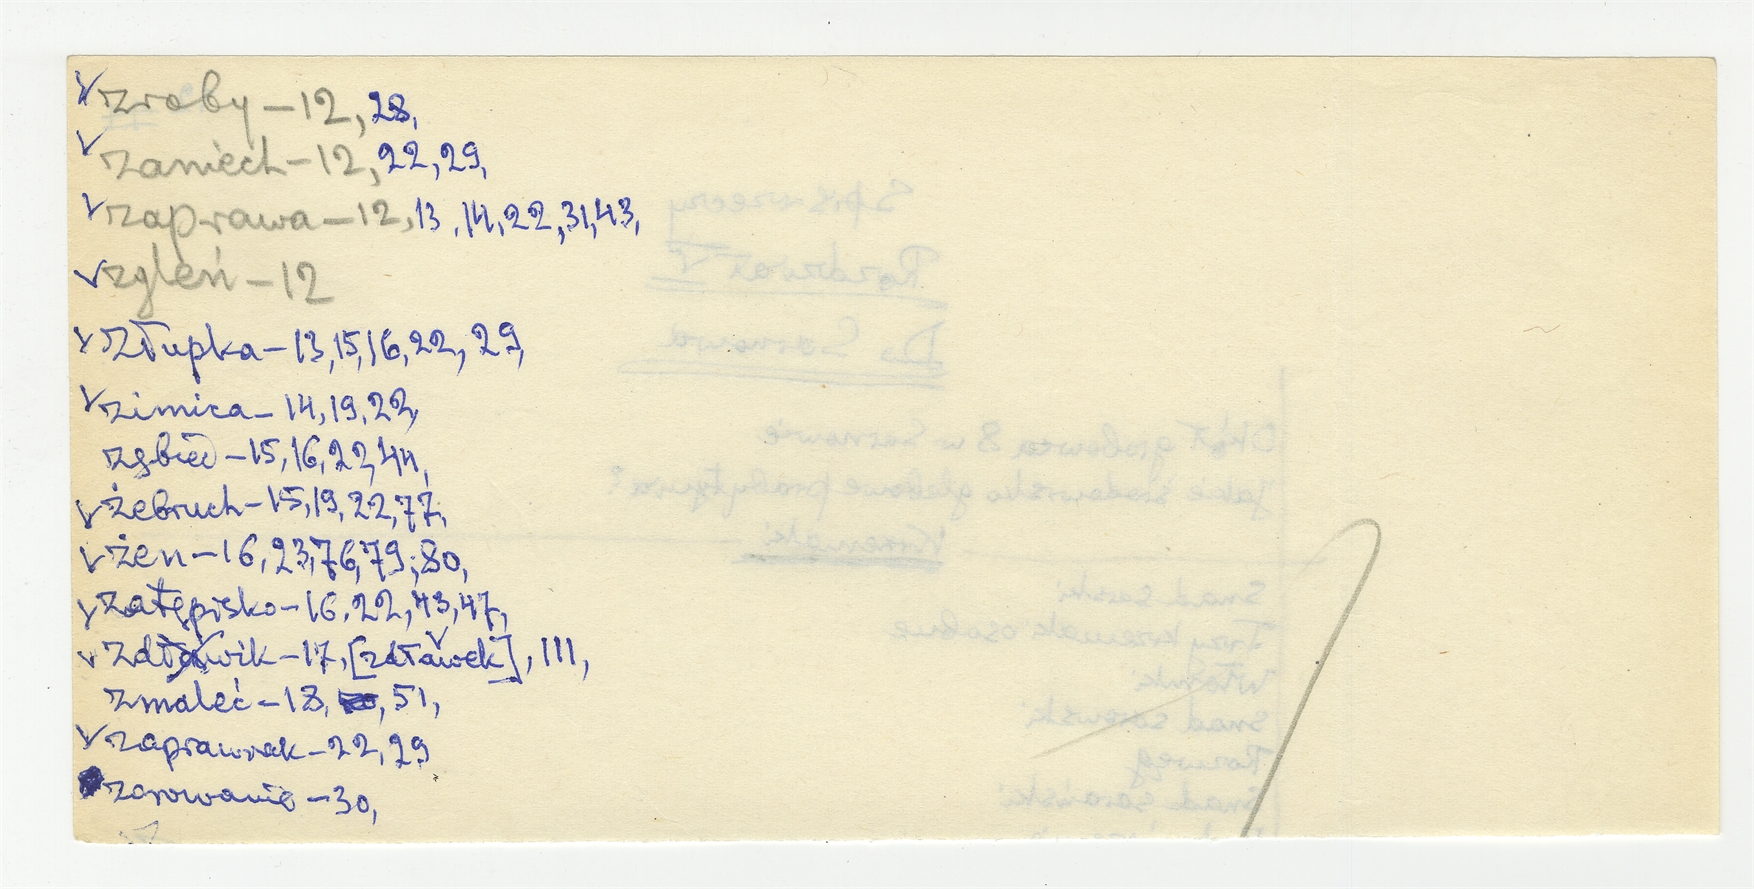 zroby – 12, 28,
zaniech – 12, 22, 29,
zaprawa – 12, 13, 14, 22, 31, 43,
zgleń – 12
złupka – 13, 15, 16, 22, 29,
zimica – 14, 19, 22,
zgbied – 15, 16, 22, 44,
żebruch – 15, 19, 22, 77,
żen – 16, 23, 76, 79, 80,
zatępisko – 16, 22, 43, 47,
17, [zdławek], 111,
zmaleć – 18, 51,
zaprawiak – 22, 29
zorowanie – 30,